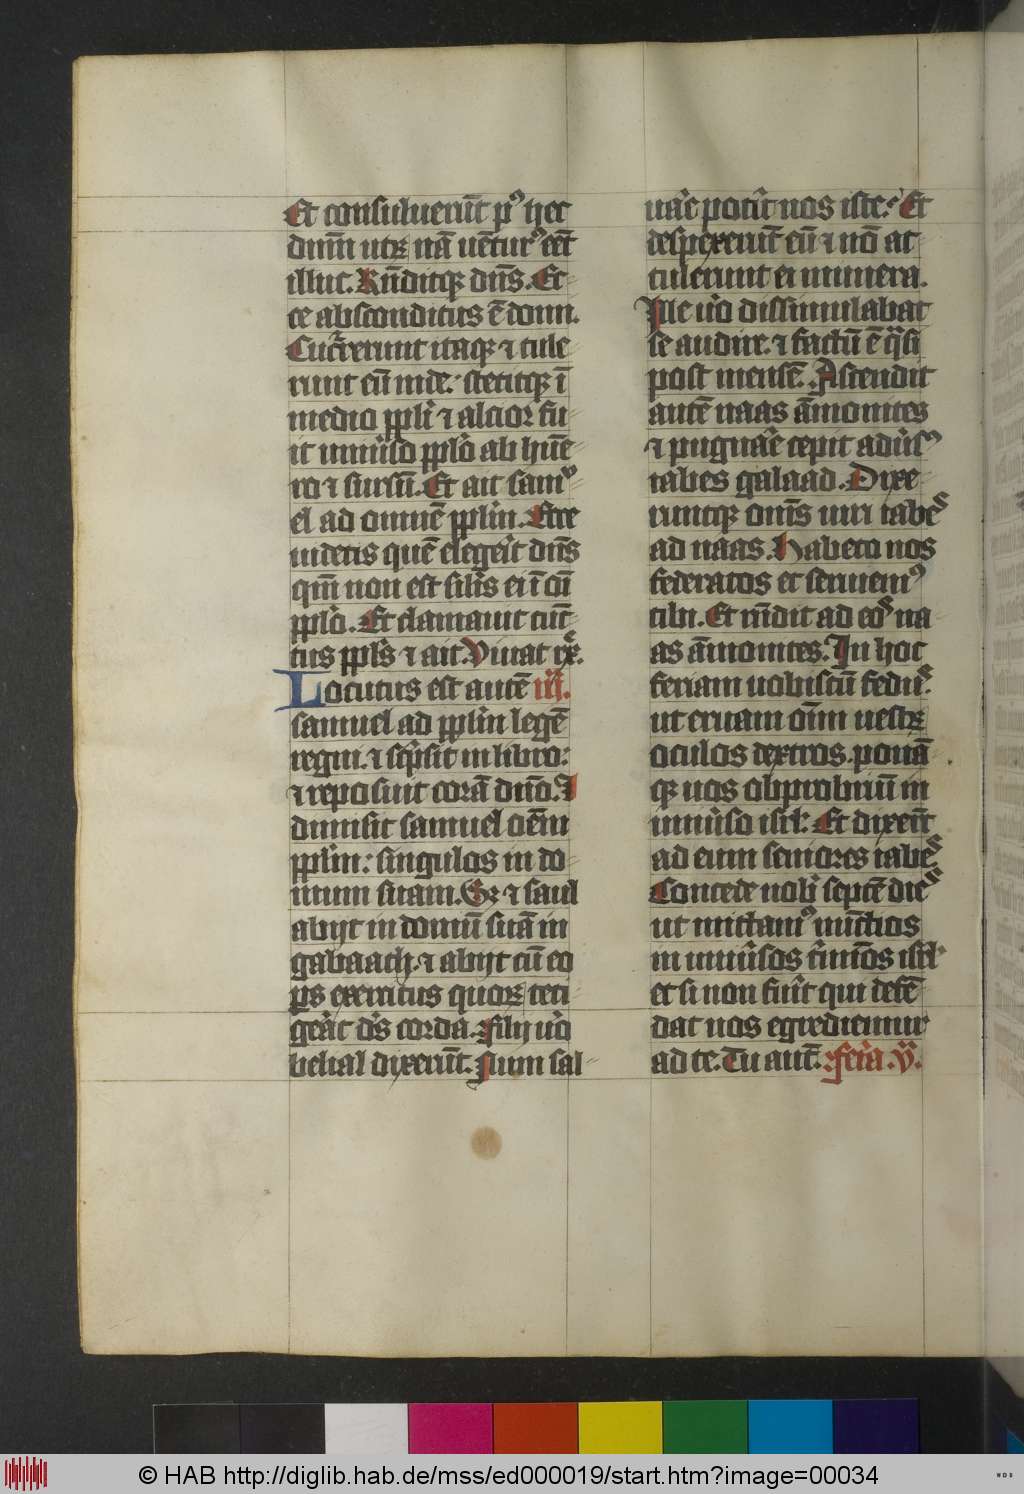 Et consuluerūt pꝰ hec
dnm̄ utꝝ nā uētur⁹ eēt
illuc. Rn̄ditqꝫ dn̄s. Ec-
ce absconditus ē domi.
Cucrrerunt itaqꝫ ⁊ tule
runt eū inde. stetitqꝫ ī
medio ppl̓i ⁊ altior fu-
it uniūso ppl̓o ab hūe-
ro ⁊ sursū. Et ait samꝰ
el ad omnē ppl̓m. Ecce
uidetis quē elegeīt dn̄s
qm̄ non est sil̓is ei ī oī
ppl̓o. Et clamauit cūc
tus ppl̓s ⁊ ait. Viuat rex.
Locutus est autē iii.
samuel ad ppl̓m legē
regni. ⁊ sc̓psit in libro:
⁊ reposuit corā dn̄o. ⁊
dimisit samuel oēm
ppl̓m: singulos in do-
mum suam. Sꝫ ⁊ saul
abijt in domū suā in
gabaath. ⁊ abijt cū eo
ps exercitus quoꝝ teti
geāt ds̄ corda. Filij u̓o
belial dixerūt. Num sal-
uāe potīt nos iste? Et
despexerūt eū ⁊ nō at-
tulerunt ei munera.
Ille u̓o dissimulabat
se audire. ⁊ factū ē qͣsi
post mensē. Ascendit
autē naas āmonites
⁊ pugnāe cepit adūsꝰ
iabes galaad. Dixe-
runtqꝫ om̄s uiri iabeˢ
ad naas. Habeto nos
federatos et seruiemꝰ
tibi. Et rn̄dit ad eoˢ na
as āmonites. In hoc
feriam uobiscū feduˢ.
ut eruam om̄i uestꝝ
oculos dextros. ponā
qꝫ uos obprobriū in
uniūso isrl̓: Et dixeīt
ad eum seniores iabeˢ
Concede nob̓ septē dieˢ
ut mittamꝰ nūctios
in uniūsos t̓minos isrl̓
et si non fuīt qui defē
dat nos egrediemur
ad te. Tu aut̄. Feria. v.
© HAB http://diglib.hab.de/mss/ed000019/start.htm?image=00034